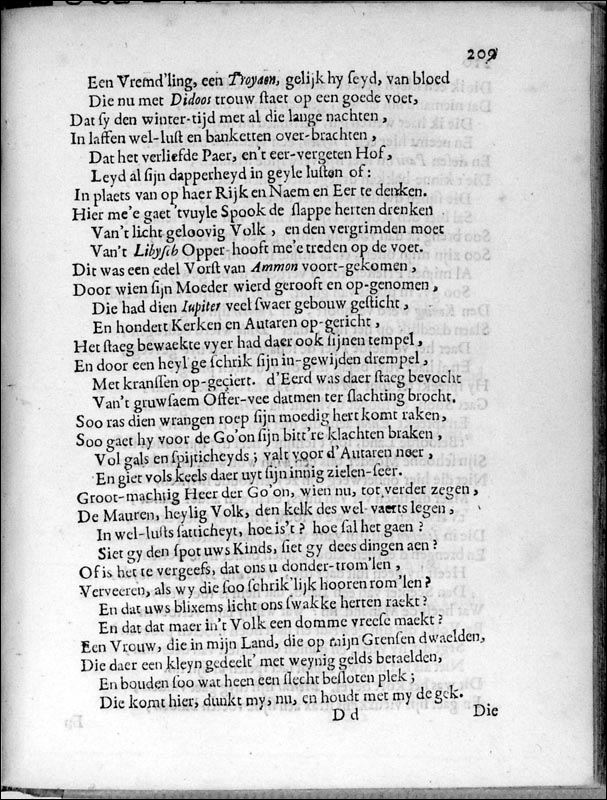 209
Een Vremd'ling, een Troyaen, gelijk hy seyd, van bloed
Die nu met Didoos trouw staet op een goede voet,
Dat sy den winter-tijd met al die lange nachten,
In lassen wel-lust en banketten over-brachten,
Dat het verliefde Paer, en't eer-vergeten Hof,
Leyd al sijn dapperheyd in geyle lusten of:
In plaets van op haer Rijk en Naem en Eer te denken.
Hier me'e gaet 'tvuyle Spook de slappe herten drenken
Van't licht geloovig Volk, en den vergrimden moet
Van't Libysch Opper-hooft me'e treden op de voet.
Dit was een edel Vorst van Ammon voort-gekomen,
Door wien sijn Moeder wierd gerooft en op-genomen,
Die had dien Iupiter veel swaer gebouw gesticht,
En hondert Kerken en Autaren op-gericht,
Het staeg bewaekte vyer had daer ook sijnen tempel,
En door een heyl'ge schrik sijn in-gewijden drempel,
Met kranssen op-geçiert. d'Eerd was daer staeg bevocht
Van't gruwsaem Offer-vee datmen ter slachting brocht.
Soo ras dien wrangen roep sijn moedig hert komt raken,
Soo gaet hy voor de Go'on sijn bitt're klachten braken,
Vol gals en spijticheyds; valt voor d'Autaren neer,
En giet vols keels daer uyt sijn innig zielen-seer.
Groot-machtig Heer der Go'on, wien nu, tot verder zegen,
De Mauren, heylig Volk, den kelk des wel-vaerts legen,
In wel-lusts satticheyt, hoe is't? hoe sal het gaen?
Siet gy den spot uws Kinds, siet gy dees dingen aen?
Of is het te vergeefs, dat ons u donder-trom'len,
Verveeren, als wy die soo schrik'lijk hooren rom'len?
En dat uws blixems licht ons swakke herten raekt?
En dat dat maer in't Volk een domme vreese maekt?
Een Vrouw, die in mijn Land, die op mijn Grensen dwaelden,
Die daer een kleyn gedeelt' met weynig gelds betaelden,
En bouden soo wat heen een slecht besloten plek;
Die komt hier, dunkt my, nu, en houdt met my de gek.
D d
Die